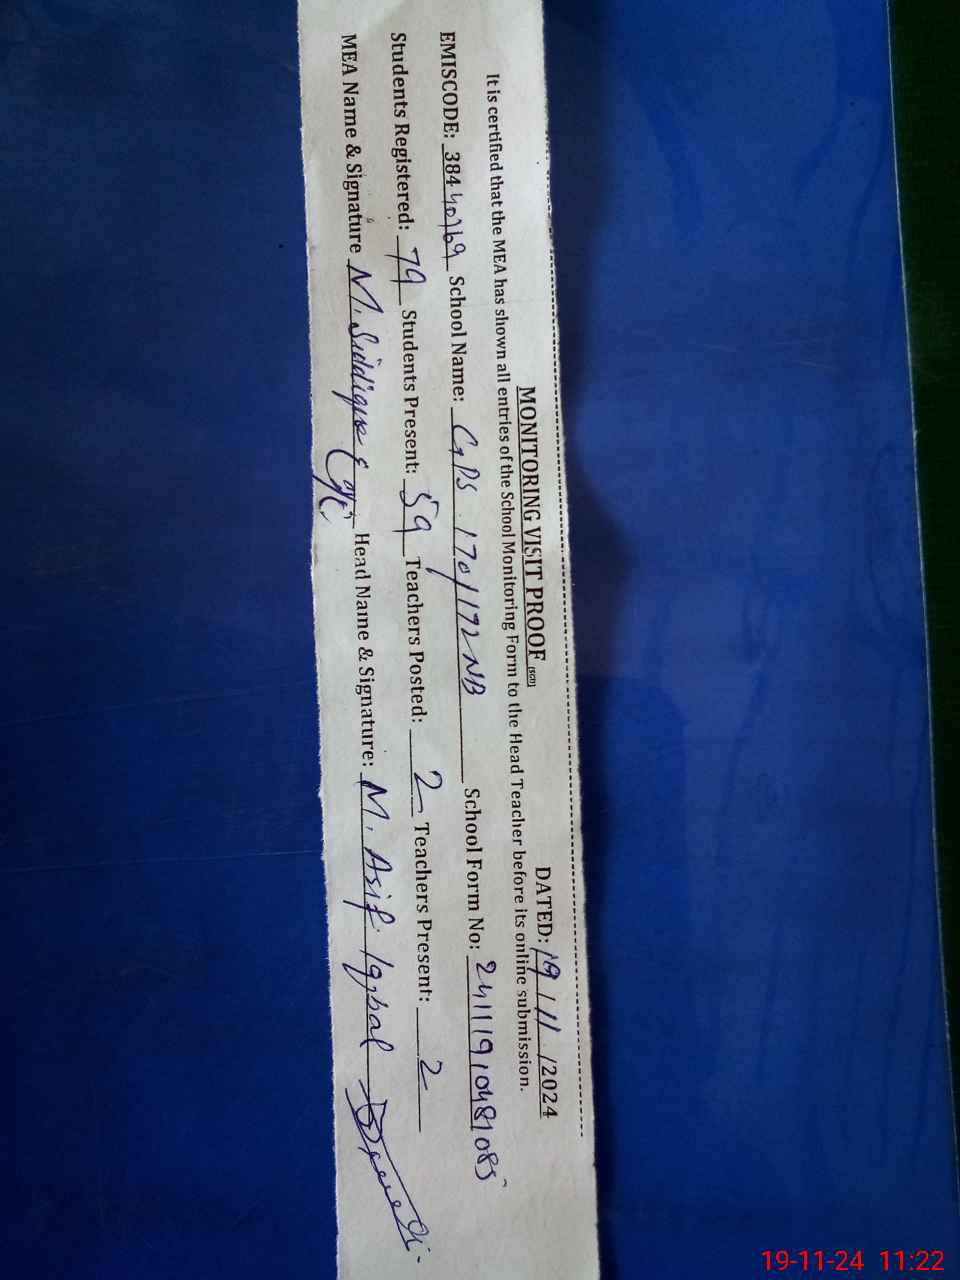 MONITORING VISIT PROOF (SED) DATED: 19/11/2024
It is certified that the MEA has shown all entries of the School Monitoring Form to the Head Teacher before its online submission.
EMISCODE: 38440169 School Name: GPS 170/172 NB School Form No:
Students Registered: 79 Students Present: 59 Teachers Posted: 2 Teachers Present: 2
MEA Name & Signature M. Siddique Head Name & Signature: M. Asif Iqbal
19-11-24 11:22